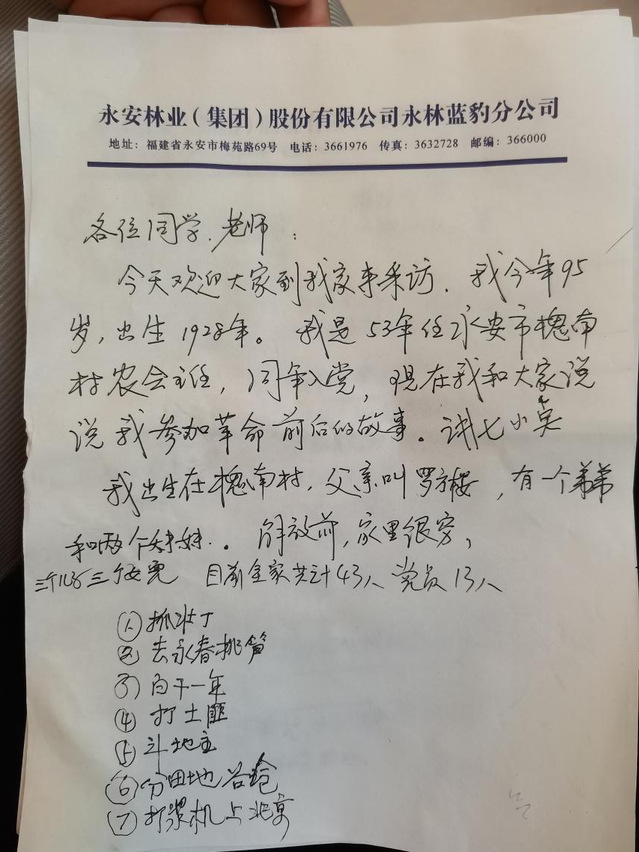 永安林业(集团)股份有限公司永林蓝豹分公司
地址：福建省永安市梅苑路69号 电话：3661976 传真：3632728 邮编：366000
各位同学、老师：
今天欢迎大家到我家来采访。我今年95
岁，出生1928年。我是53年任永安市槐南
村农会主任，同年入党，现在我和大家说
说我参加革命前后的故事。讲七小点
我出生在槐南村，父亲叫罗方楼，有一个弟弟
和两个妹妹。解放前，家里很穷，
三个儿子三个女儿 目前全家共计43人 党员13人
① 抓壮丁
② 去永春挑笋
③ 白干一年
④ 打土匪
⑤ 斗地主
⑥ 分田地 谷仓
⑦ 打浆机上北京